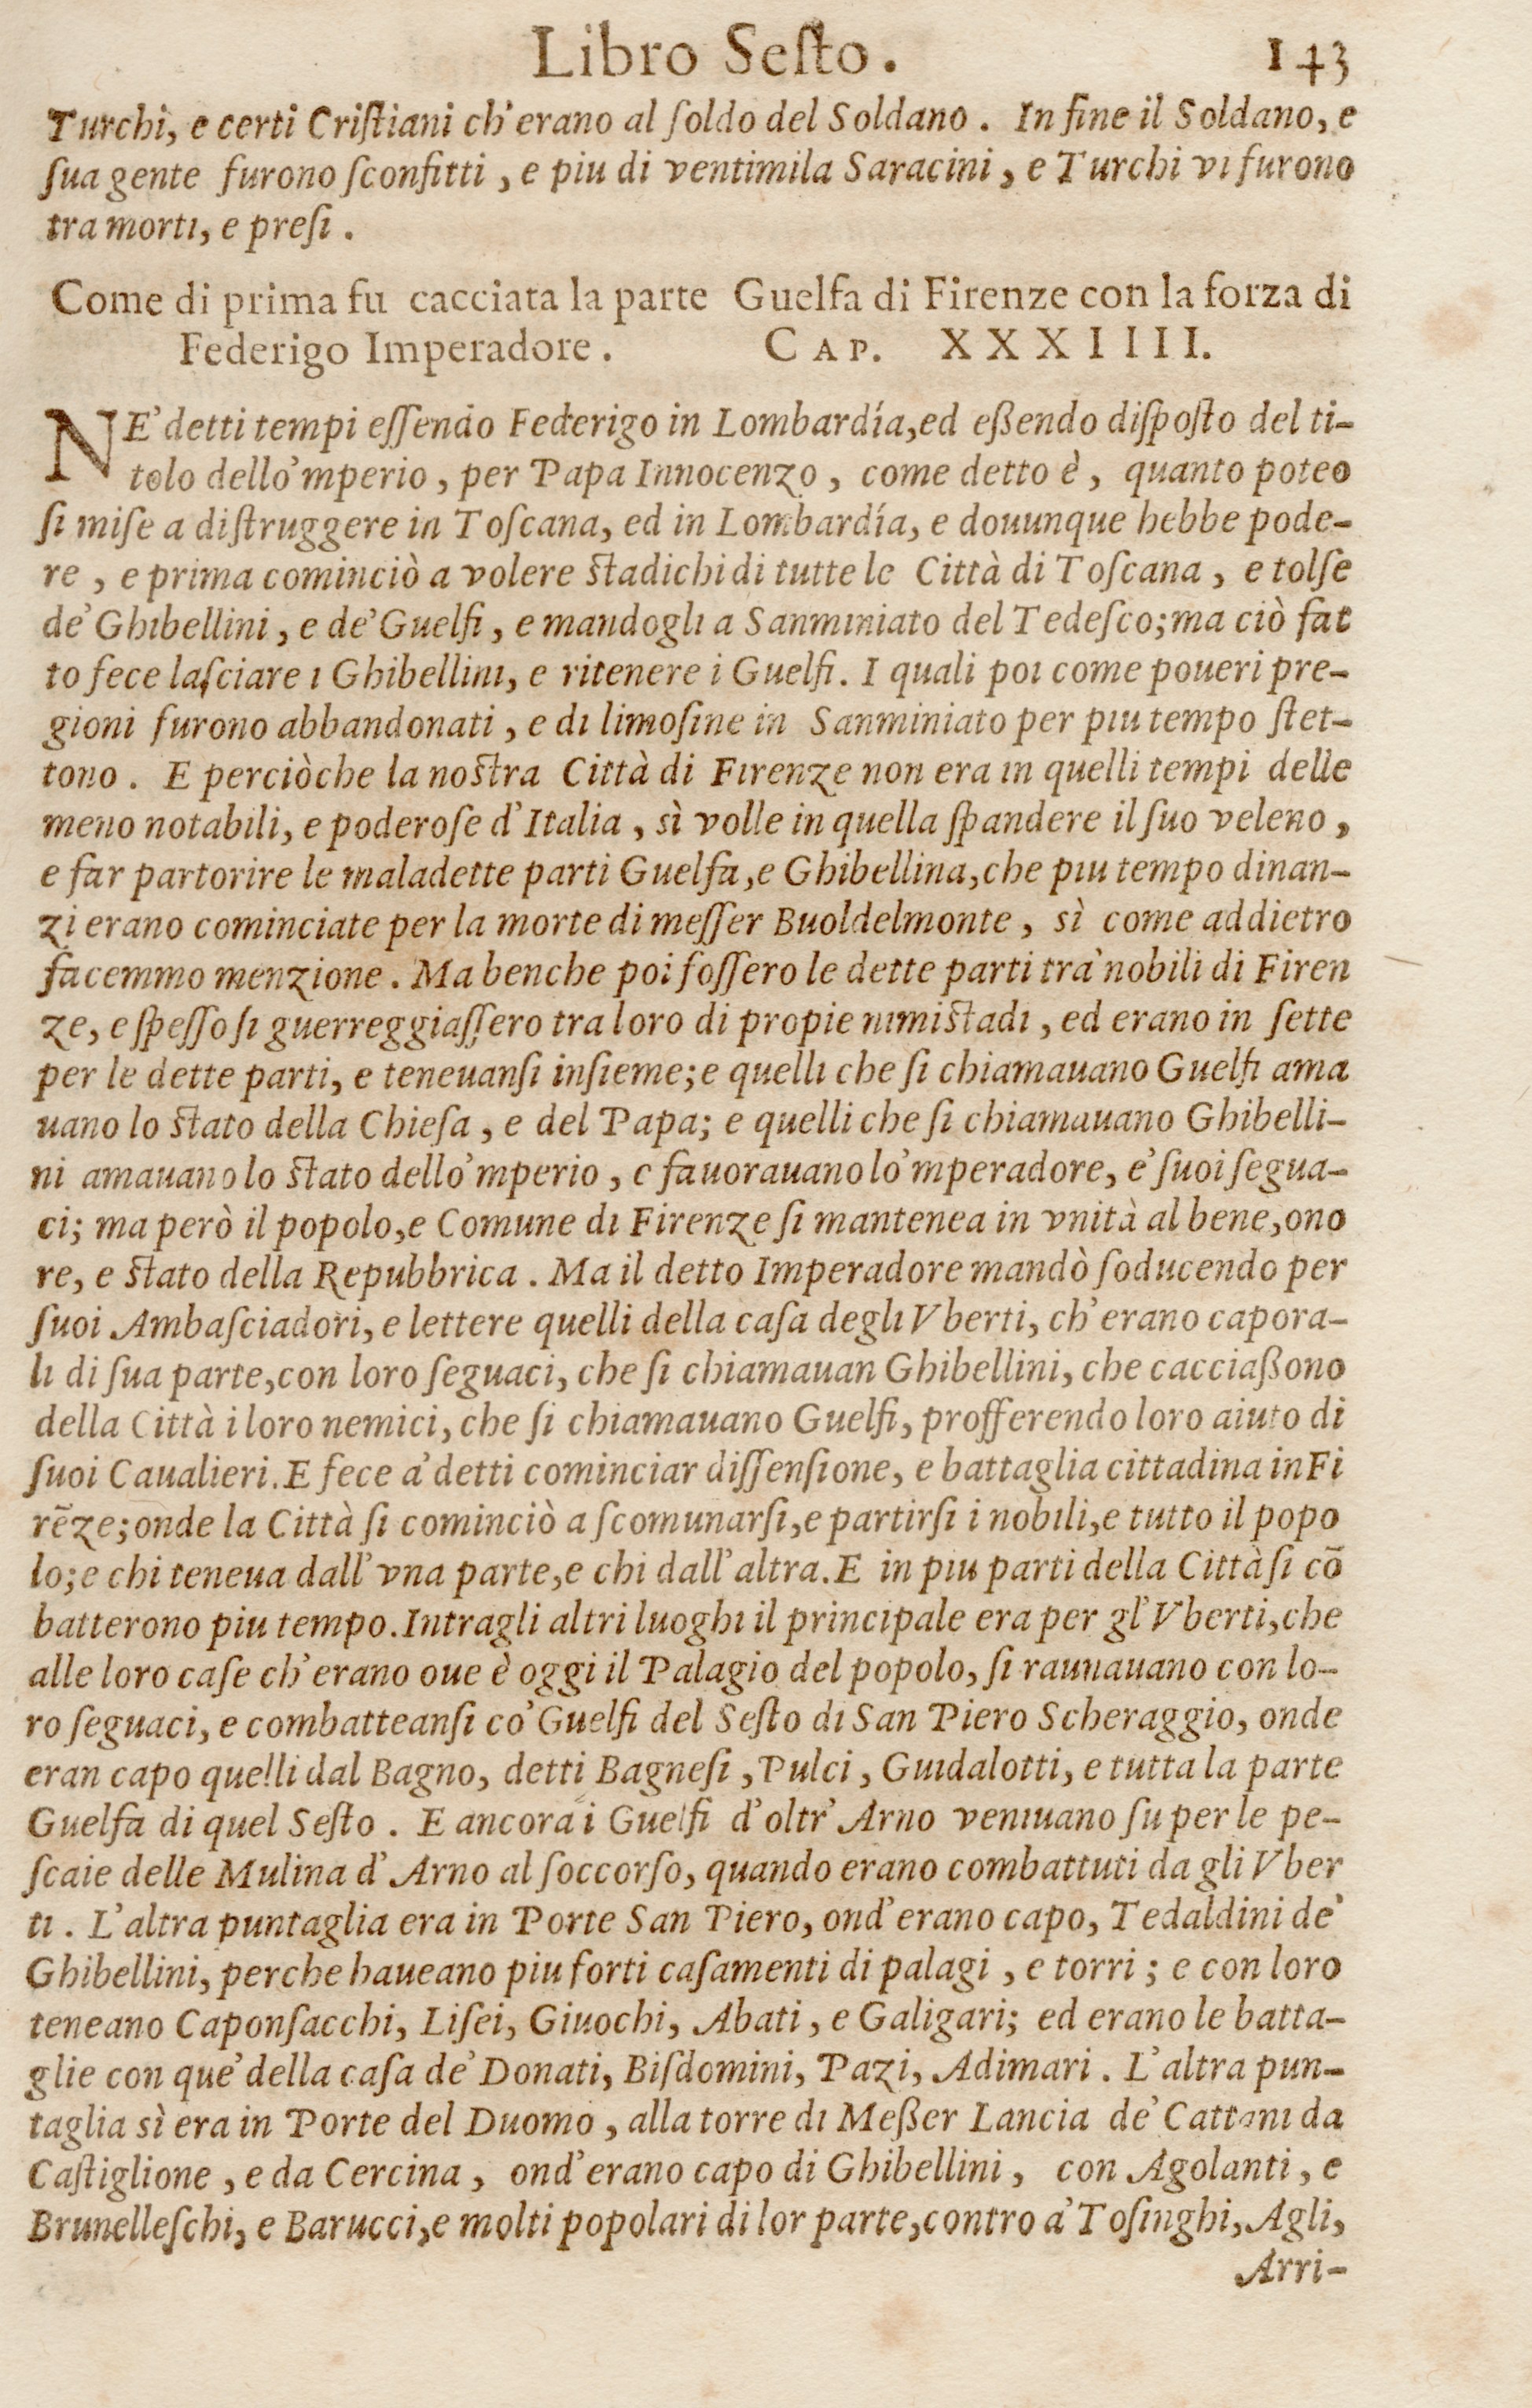 Libro Seſto. 143
Turchi, e certi Criſtiani ch'erano al ſoldo del Soldano. In fine il Soldano, e
ſua gente furono ſconfitti, e piu di ventimila Saracini, e Turchi vi furono
tra morti, e preſi.
Come di prima fu cacciata la parte Guelfa di Firenze con la forza di
Federigo Imperadore. CAP. XXXIIII.
NE' detti tempi eſſendo Federigo in Lombardía, ed eßendo diſpoſto del ti-
tolo dello 'mperio, per Papa Innocenzo, come detto è, quanto poteo
ſi miſe a diſtruggere in Toſcana, ed in Lombardía, e douunque hebbe pode-
re, e prima cominciò a volere ſtadichi di tutte le Città di Toſcana, e tolſe
de' Ghibellini, e de' Guelfi, e mandogli a Sanminiato del Tedeſco; ma ciò fat
to fece laſciare i Ghibellini, e ritenere i Guelfi. I quali poi come poueri pre-
gioni furono abbandonati, e di limoſine in Sanminiato per piu tempo ſtet-
tono. E perciòche la noſtra Città di Firenze non era in quelli tempi delle
meno notabili, e poderoſe d'Italia, sì volle in quella ſpandere il ſuo veleno,
e far partorire le maladette parti Guelfa, e Ghibellina, che piu tempo dinan-
zi erano cominciate per la morte di meſſer Buoldelmonte, sì come addietro
facemmo menzione. Ma benche poi foſſero le dette parti tra' nobili di Firen
ze, e ſpeſſo ſi guerreggiaſſero tra loro di propie nimiſtadi, ed erano in ſette
per le dette parti, e teneuanſi inſieme; e quelli che ſi chiamauano Guelfi ama
uano lo ſtato della Chieſa, e del Papa; e quelli che ſi chiamauano Ghibelli-
ni amauano lo ſtato dello 'mperio, e fauorauano lo 'mperadore, e' ſuoi ſegua-
ci; ma però il popolo, e Comune di Firenze ſi mantenea in vnità al bene, ono
re, e ſtato della Repubbrica. Ma il detto Imperadore mandò ſoducendo per
ſuoi Ambaſciadori, e lettere quelli della caſa degli Vberti, ch'erano capora-
li di ſua parte, con loro ſeguaci, che ſi chiamauan Ghibellini, che cacciaßono
della Città i loro nemici, che ſi chiamauano Guelfi, profferendo loro aiuto di
ſuoi Caualieri. E fece a' detti cominciar diſſenſione, e battaglia cittadina in Fi
rēze; onde la Città ſi cominciò a ſcomunarſi, e partirſi i nobili, e tutto il popo
lo; e chi teneua dall'vna parte, e chi dall'altra. E in piu parti della Città ſi cō
batterono piu tempo. Intragli altri luoghi il principale era per gl'Vberti, che
alle loro caſe ch'erano oue è oggi il Palagio del popolo, ſi raunauano con lo-
ro ſeguaci, e combatteanſi co' Guelfi del Seſto di San Piero Scheraggio, onde
eran capo quelli dal Bagno, detti Bagneſi, Pulci, Guidalotti, e tutta la parte
Guelfa di quel Seſto. E ancora i Guelfi d'oltr'Arno veniuano ſu per le pe-
ſcaie delle Mulina d'Arno al ſoccorſo, quando erano combattuti da gli Vber
ti. L'altra puntaglia era in Porte San Piero, ond'erano capo, Tedaldini de'
Ghibellini, perche haueano piu forti caſamenti di palagi, e torri; e con loro
teneano Caponſacchi, Liſei, Giuochi, Abati, e Galigari; ed erano le batta-
glie con que' della caſa de' Donati, Biſdomini, Pazi, Adimari. L'altra pun-
taglia sì era in Porte del Duomo, alla torre di Meßer Lancia de' Cattani da
Caſtiglione, e da Cercina, ond'erano capo di Ghibellini, con Agolanti, e
Brunelleſchi, e Barucci, e molti popolari di lor parte, contro a' Toſinghi, Agli,
Arri-